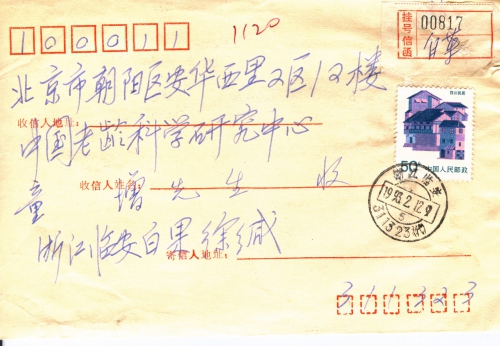 100011
1120
挂号信函
00817
北京市朝阳区安华西里2区12楼
收信人地址:
中国老龄科学研究中心
收信人姓名:
童增先生 收
浙江临安白果徐缄
寄信人地址:
50
中国人民邮政
浙江临安
1993.2.12.9
5
311323(代)
311323